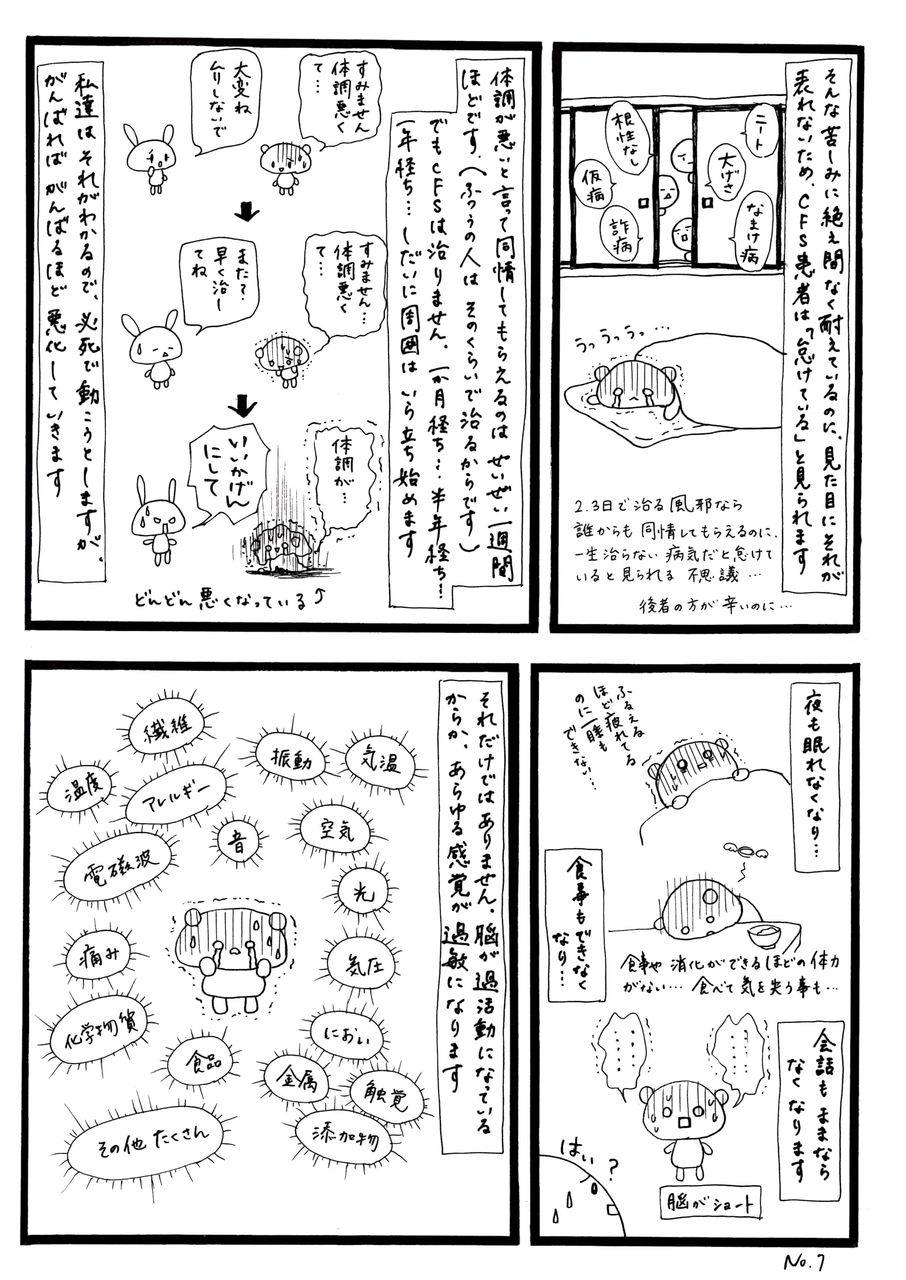 そんな苦しみに絶え間なく耐えているのに、見た目にそれが
表れないため、CFS患者は「怠けている」と見られます
ニート
根性なし
大げさ
仮病
なまけ病
詐病
うっうっうっ…
2.3日で治る風邪なら
誰からも同情してもらえるのに、
一生治らない病気だと怠けて
いると見られる不思議…
後者の方が辛いのに…
体調が悪いと言って同情してもらえるのはせいぜい一週間
ほどです。(ふつうの人はそのくらいで治るからです)
でもCFSは治りません。一か月経ち…半年経ち…
一年経ち…しだいに周囲はいら立ち始めます
すみません
体調悪く
て…
大変ね
ムリしないで
すみません…
体調悪く
て…
また?
早く治し
てね
体調が…
いいかげん
にして
どんどん悪くなっている⤴
私達はそれがわかるので、必死で動こうとしますが、
がんばればがんばるほど悪化していきます
夜も眠れなくなり…
ふるえる
ほど疲れてる
のに一睡も
できない…
食事もできなく
なり…
食事や消化ができるほどの体力
がない…食べて気を失う事も…
会話もままなら
なくなります
……
……
脳がショート
はい?
それだけではありません。脳が過活動になっている
からか、あらゆる感覚が過敏になります
繊維
振動
気温
温度
アレルギー
音
空気
電磁波
光
痛み
気圧
化学物質
におい
食品
金属
触覚
添加物
その他たくさん
No.7